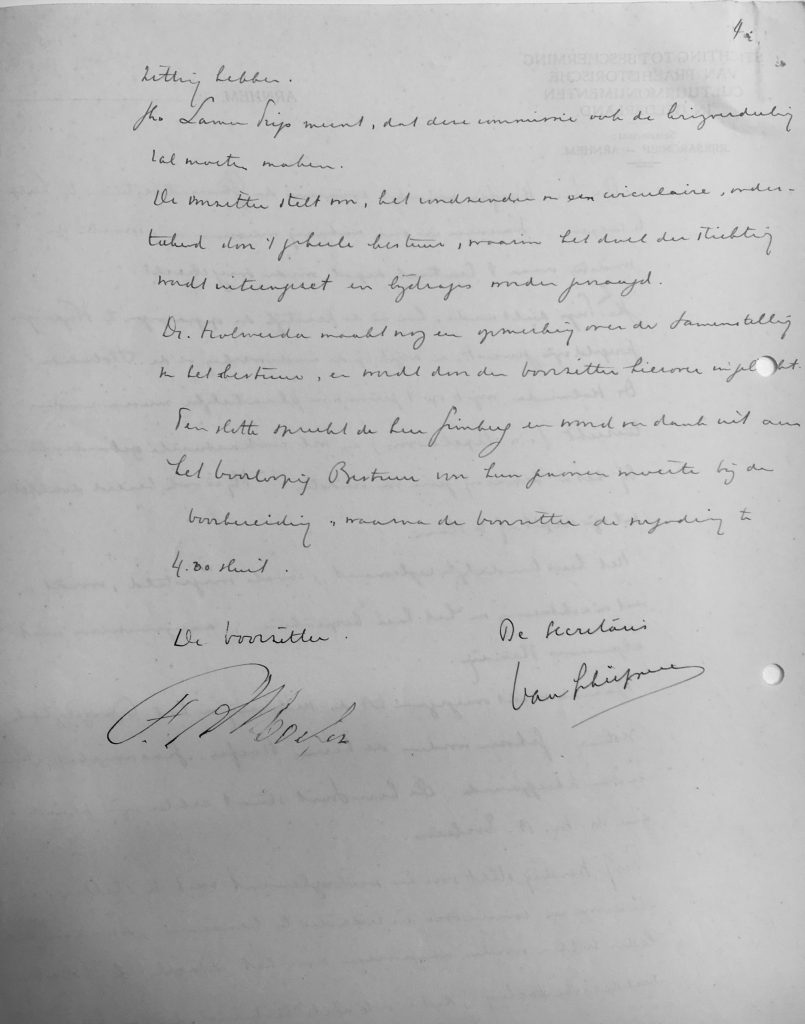 4a.
zitting hebben.
Jhr Laman Trip meent, dat deze commissie ook de krijgverdeeling
zal moeten maken.
De voorzitter stelt voor, het rondzenden van een circulaire, onder-
teekend door 't geheele bestuur, waarin het doel der stichting
wordt uiteengezet en bijdragen worden gevraagd.
Dr. Holwerda maakt nog een opmerking over de samenstelling
van het bestuur, en wordt door den voorzitter hierover ingelicht.
Ten slotte spreekt de heer Grimberg een woord van dank uit aan
het voorloopig Bestuur voor hun genomen moeite bij de
voorbereiding, waarna de voorzitter de vergadering te
4.30 sluit.
De voorzitter. De secretaris